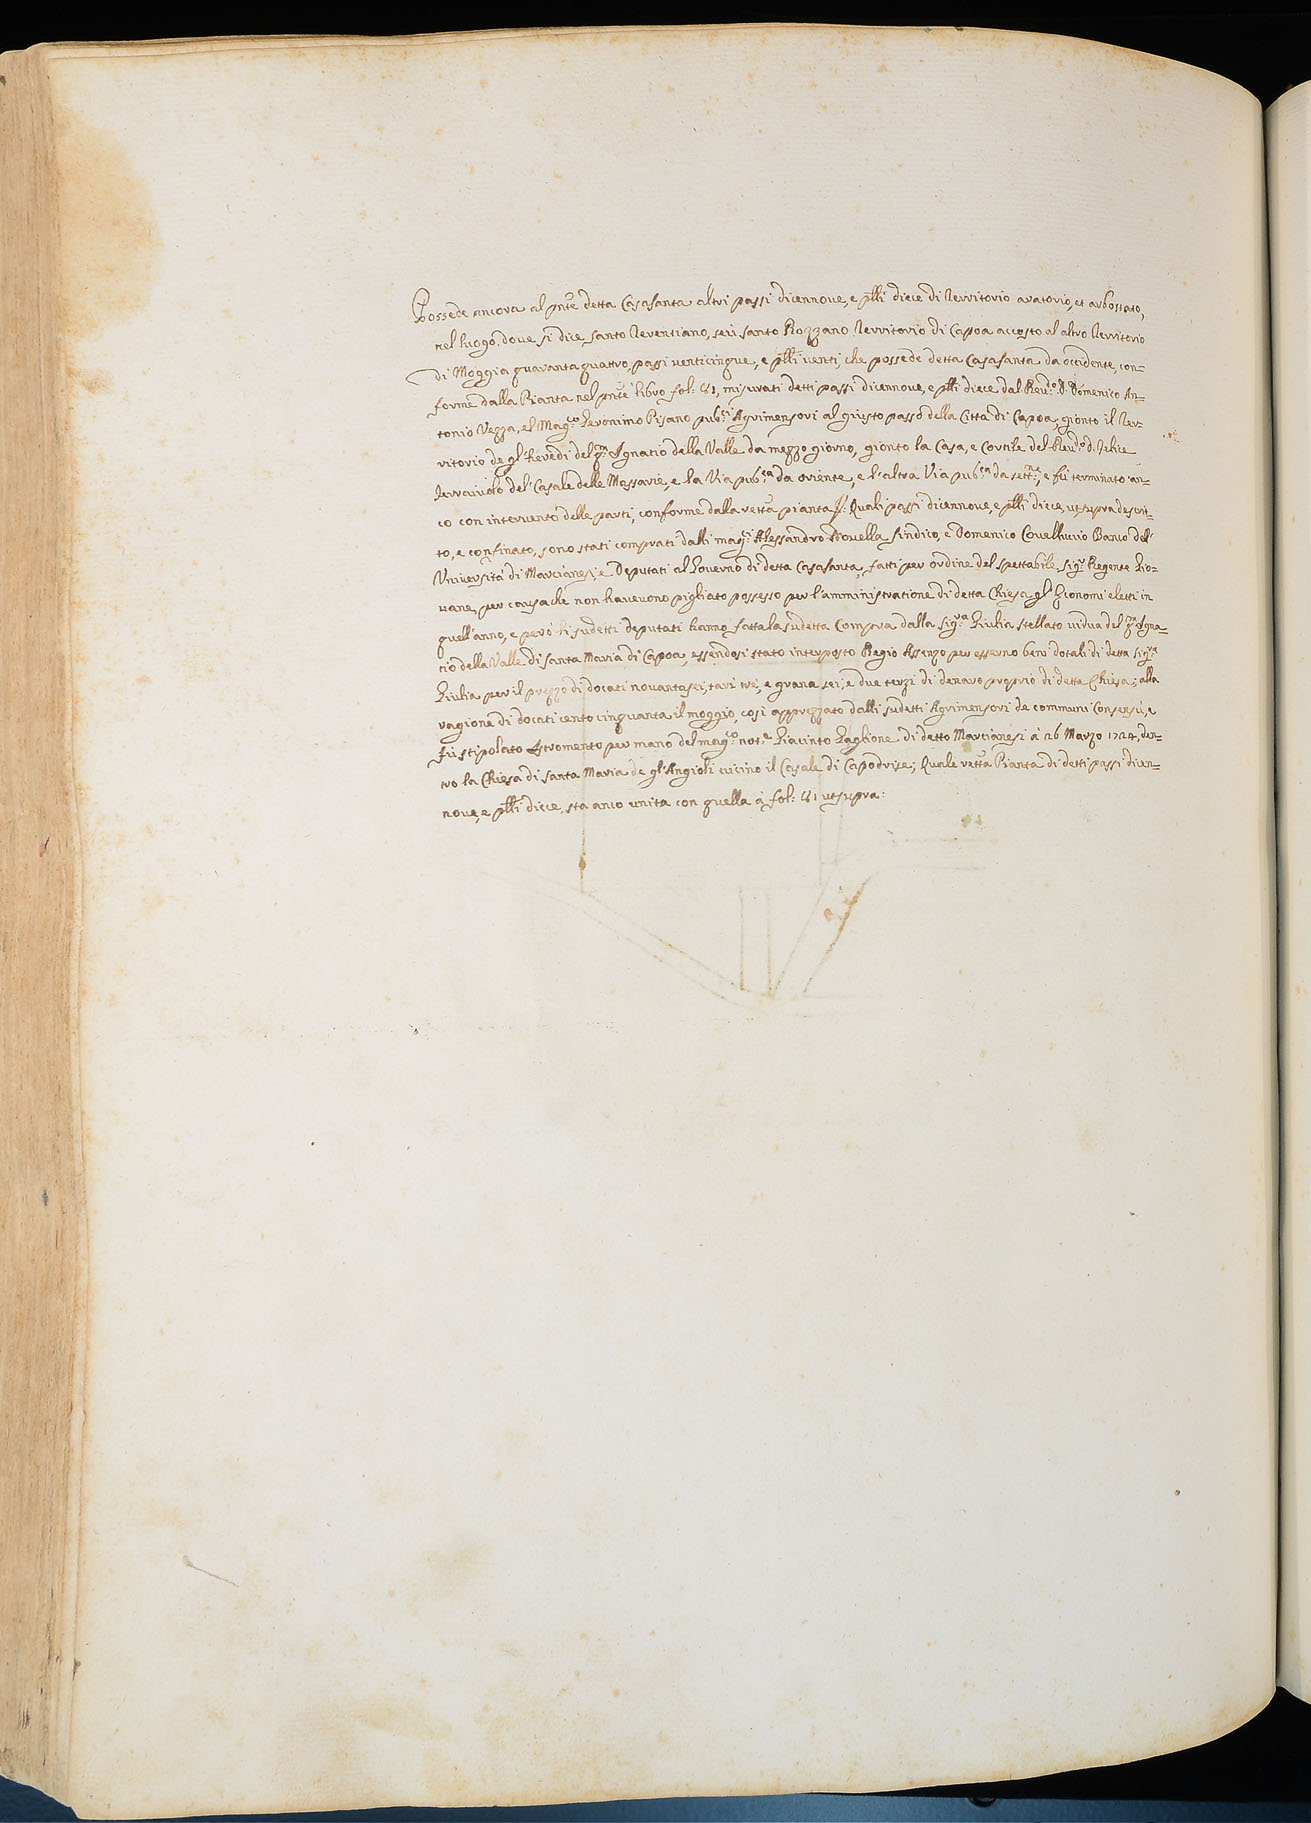 Possede ancora al pnte detta Casasanta altri passi dicennove, e plli diece di Territorio aratorio, et arbostato,
nel luogo, dove si dice santo Terentiano, seu santo Rozzano Territorio di Capoa accosto al altro Territorio
di Moggia quaranta quattro, passi venticinque, e plli venti, che possede detta Casasanta da occidente, con=
forme dalla Pianta nel pnte libro fol: 61, misurati detti passi dicennove, e plli diece dal Reu.do D. Domenico An=
tonio Vezza, e'l Mag.co Geronimo Pisano pub.ci Agrimensori al giusto passo della Città di Capoa; gionto il Ter=
ritorio de gl'heredi del qm Ignatio della Valle da mezzo giorno, gionto la Casa, e Cortile del Reu.do d.
del Casale delle Massarie, e la Via pub.ca da oriente, e l'altra Via pub.ca da sett.ne, e fù terminato an=
co con intervento delle parti, conforme dalla retta pianta Quali passi dicennove, e plli diece, ut supra descrit=
to, e confinato, sono stati comprati dalli mag.ci Alessandro Novella sindico, e Domenico Covelluccio Banco dell'
Università di Marcianesi, e Deputati al Governo di detta Casasanta, fatti per ordine del spettabile sig.r Regente Gio=
vane, per causa che non havevono pigliato possesso per l'amministratione di detta Chiesa gl'Economi eletti in
quell'anno, e però li sudetti deputati hanno fatta la sudetta Compra dalla sig.ra Giulia stellato vidua del qm Igna=
tio della Valle di santa Maria di Capoa, essendosi stato interposto Regio Assenzo per esserno beni dotali di detta sig.ra
Giulia per il prezzo di docati novantasei, tarì trè, e grana sei, e due terzi di denaro proprio di detta Chiesa; alla
ragione di docati cento cinquanta il moggio, così apprezzato dalli sudetti Agrimensori de communi Consensu, e
fù stipolato Istromento per mano del mag.co not.r Giacinto Gaglione di detto Marcianesi à 26 Marzo 1724, den=
tro la Chiesa di santa Maria de gl'Angioli vicino il Casale di Capodrise; Quale retta Pianta di detti passi dicen=
nove, e plli diece, sta anco unita con quella à fol: 61 ut supra: